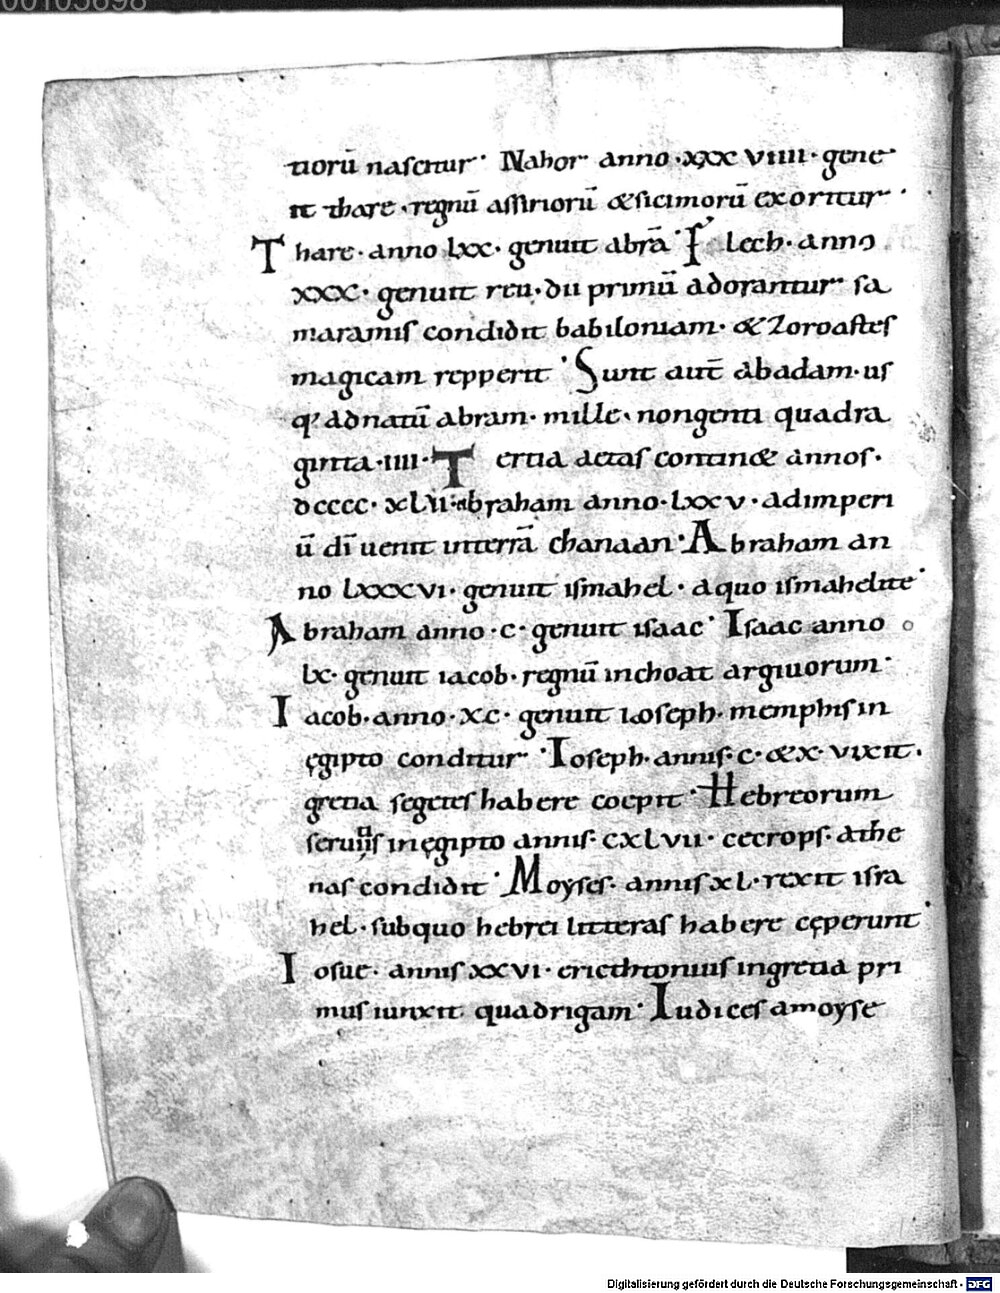 00105698
tiorū nascitur· Nahor anno ·xxx viiii· gene
it thare ·regnū assiriorū &sicimorū exoritur·
Thare· anno lxx· genuit abrā· Falech· anno
xxx· genuit reu· dii primū adorantur sa
maramis condidit babiloniam· & Zoroastes
magicam repperit· Sunt aut̄ abadam· us
q' adnatū abram· mille· nongenti quadra
ginta ·iiii· Tertia aetas contin& annos·
dcccc· xlii· abraham anno· lxxv· adimperi
ū dī uenit interrā chanaan· Abraham an
no lxxxvi· genuit ismahel· aquo ismahelite·
Abraham anno ·c· genuit isaac· Isaac anno
lx· genuit iacob· regnū inchoat argiuorum·
Iacob· anno ·xc· genuit ioseph· memphis in
ęgipto conditur· Ioseph· annis· c· &x· vixit·
gretia segetes habere coepit· Hebreorum
seruitus inęgipto annis· cxlvii· cecrops· athe
nas condidit· Moyses· annis xl· rexit isra
hel· subquo hebrei litteras habere cęperunt·
Iosue· annis xxvi· ericthonius ingretia pri
mus iunxit quadrigam· Iudices amoyse
Digitalisierung gefördert durch die Deutsche Forschungsgemeinschaft - DFG